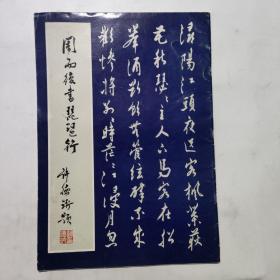 潯陽江頭夜送客楓葉荻
花秋瑟瑟主人下馬客在船
舉酒欲飲無管絃醉不成
歡慘將別別時茫茫江浸月忽
周而復書琵琶行
許德珩題